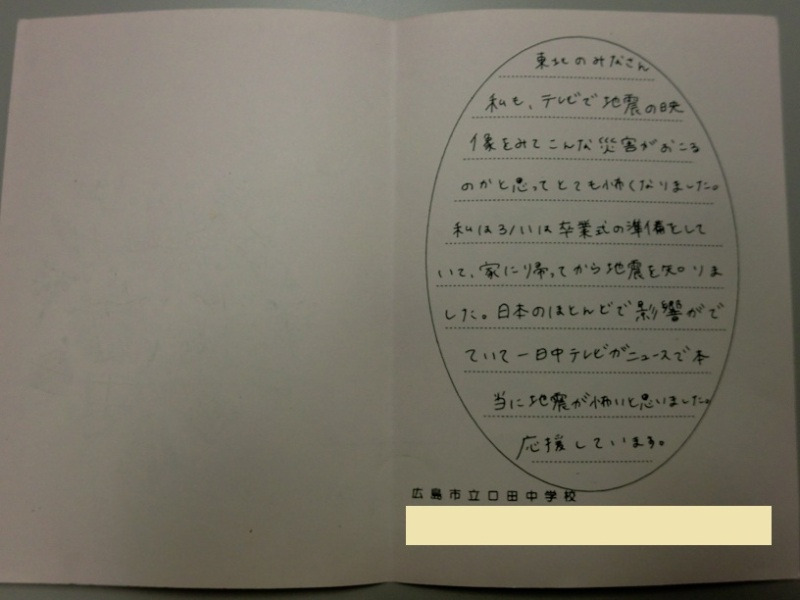 東北のみなさん
私も、テレビで地震の映
像をみてこんな災害がおこる
のかと思ってとても怖くなりました。
私は3/11は卒業式の準備をして
いて、家に帰ってから地震を知りま
した。日本のほとんどで影響がで
ていて一日中テレビがニュースで本
当に地震が怖いと思いました。
応援しています。
広島市立口田中学校